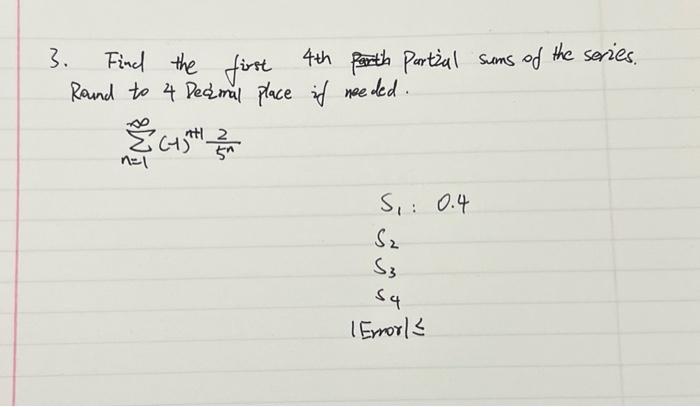 3. Find the first 4th Partial sums of the series.
Round to 4 Decimal place if needed.
∞
Σ (-1)ⁿ⁺¹ 2/5ⁿ
n=1
S₁: 0.4
S₂
S₃
S₄
|Error| ≤